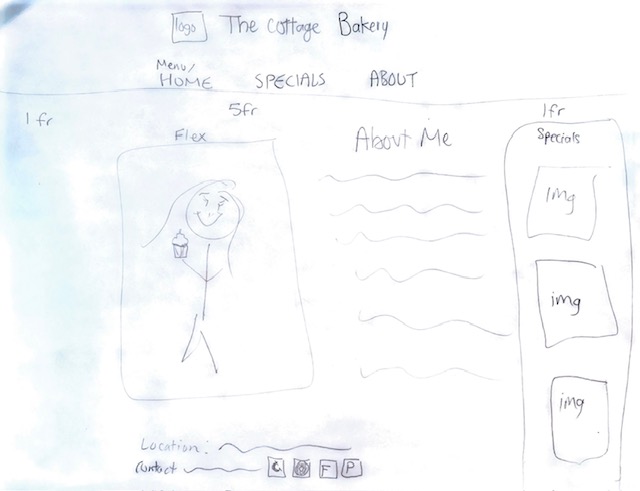 logo The Cottage Bakery
Menu/
HOME SPECIALS ABOUT
1fr 5fr 1fr
Flex About Me Specials
img
img
img
Location:
Contact F P